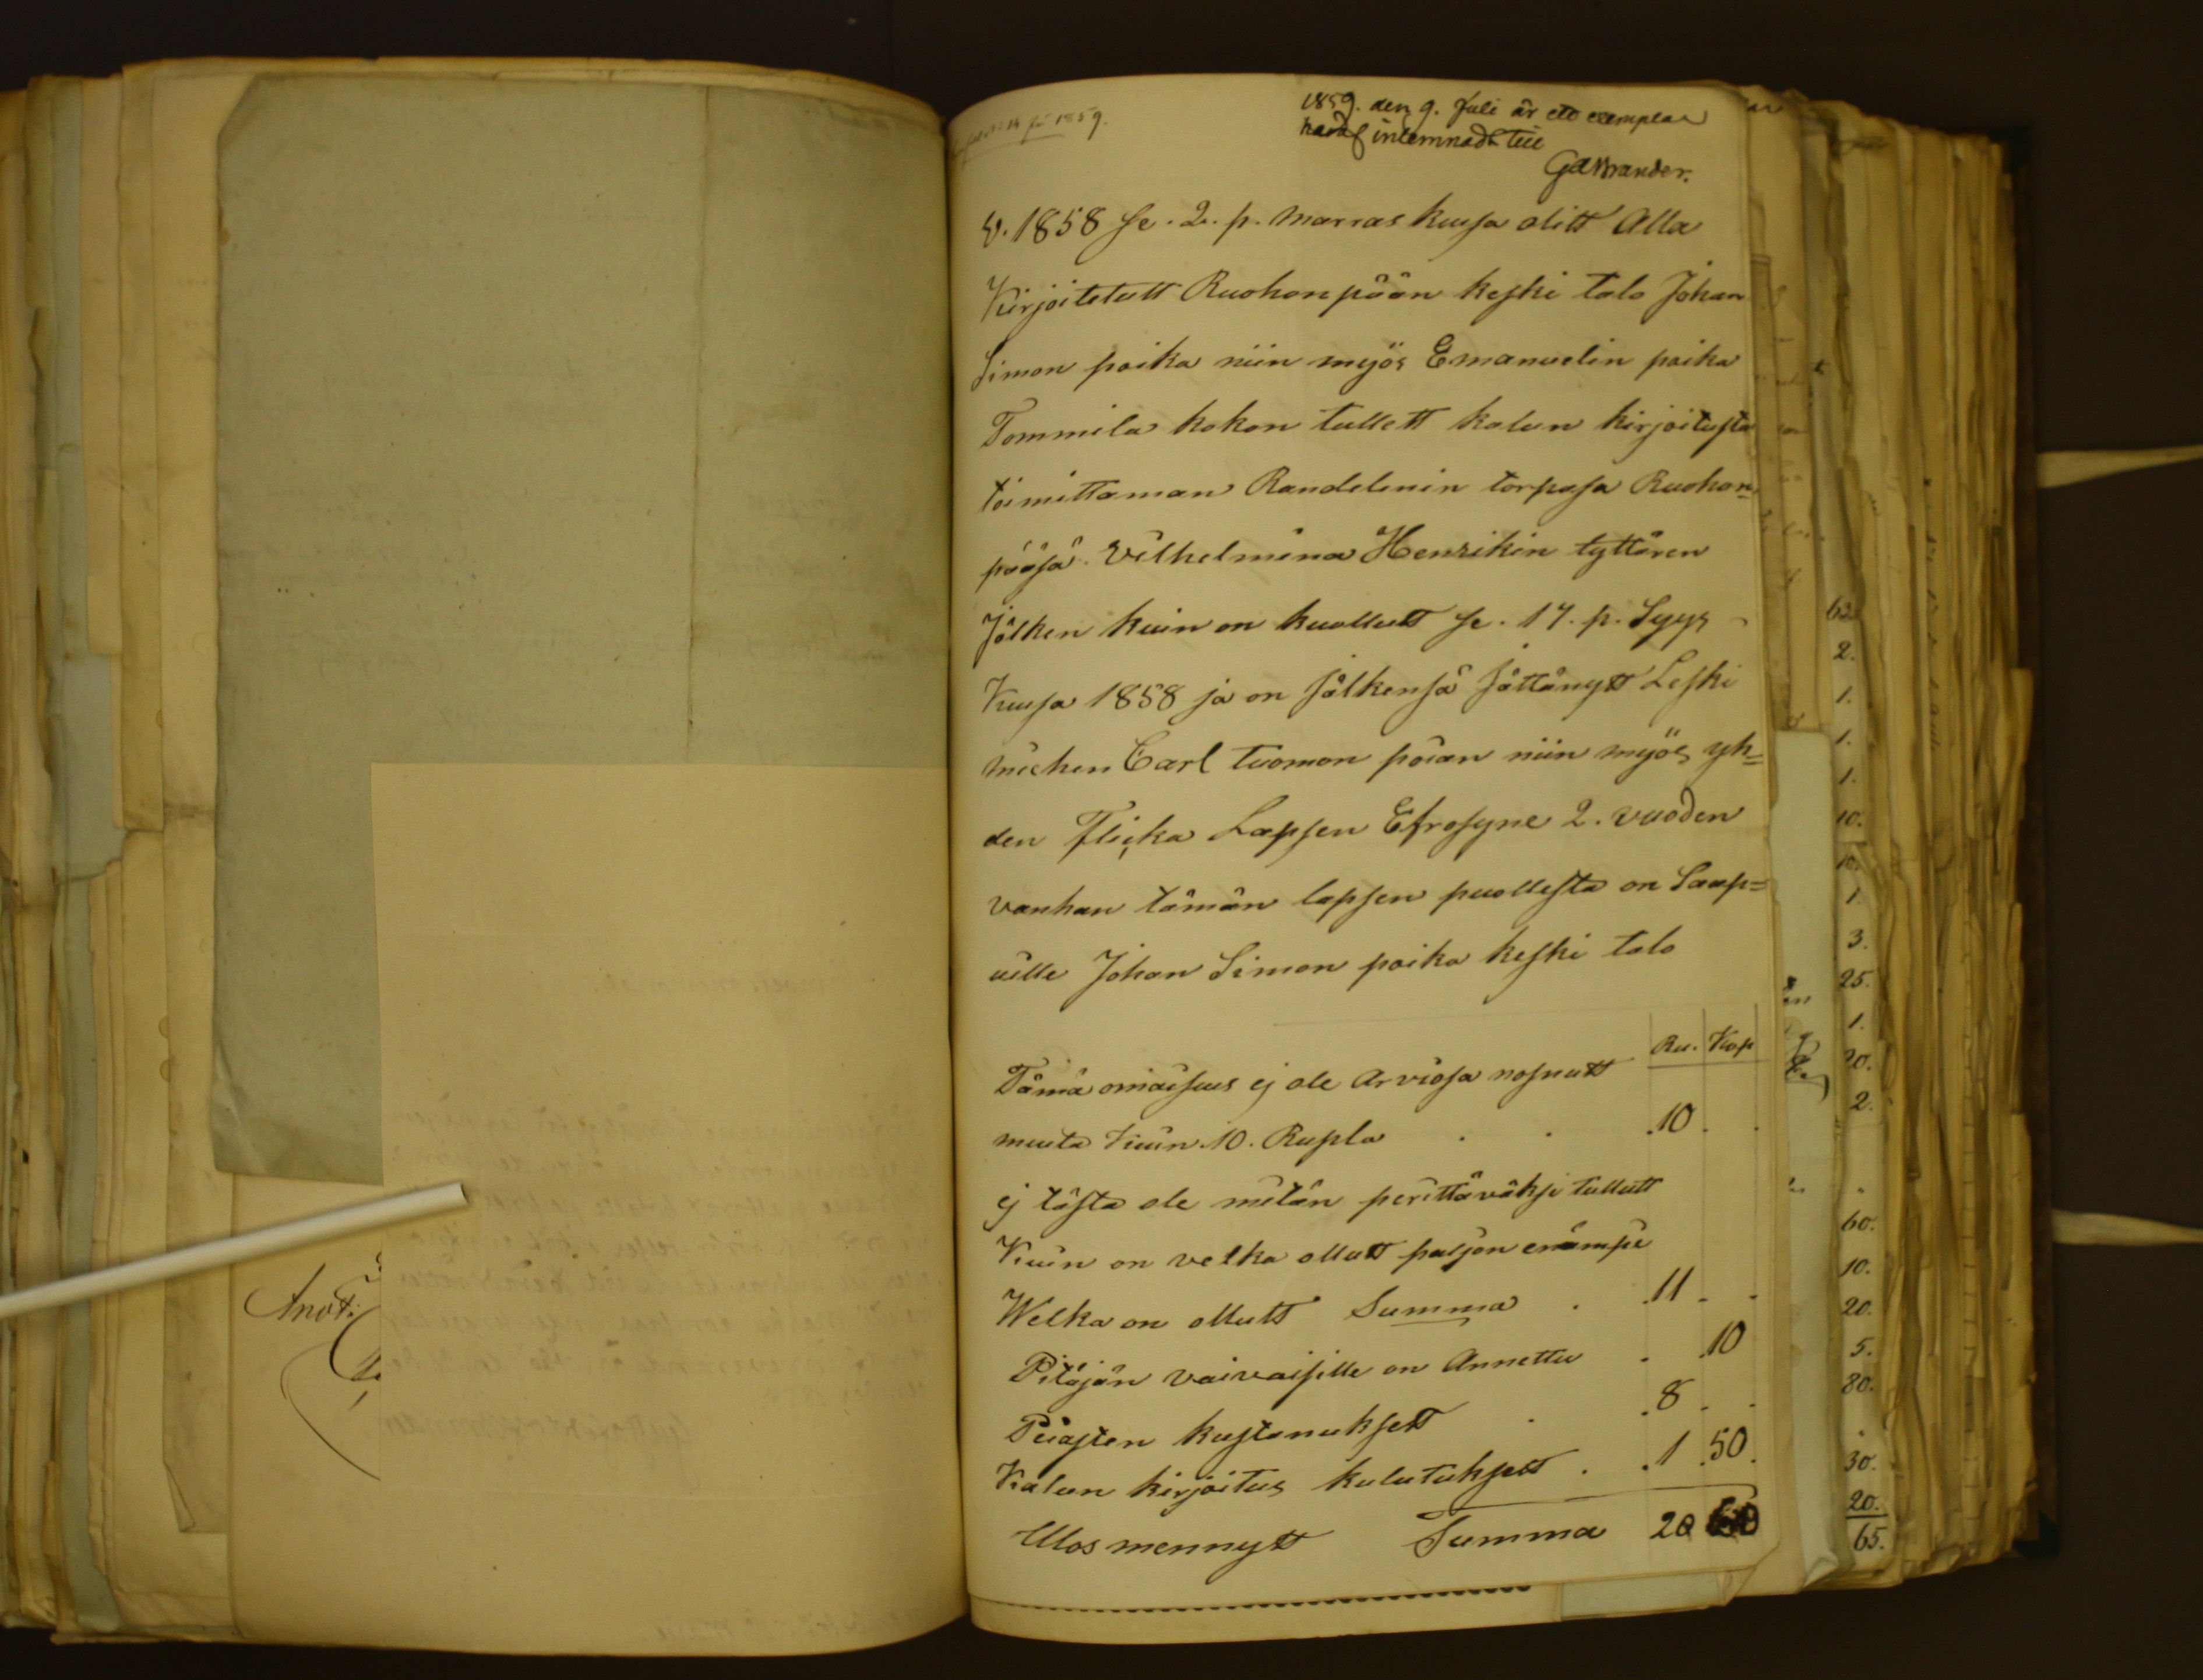 1859.
1859. den 9. Juli är ett exemplar
häraf inlemnadt till
GABrander.
V. 1858 se. 2. p. marras kuusa olitt Alla
Kirjoitetutt Ruohonpään keski talo Johan
Simon poika niin myös Emanuelin poika
Tommila kokon tullett kalun kirjoitusta
toimittaman Randelinin torpasa Ruohon-
pääsä. Vilhelmina Henrikin tyttären
Jälken kuin on kuollutt se. 17. p. Syys
Kuusa 1858 ja on jälkensä jättänytt Leski
miehen Carl Tuomon poian niin myös yh=
den flicka Lapsen Efrosyne 2. vuoden
vanhan tämän lapsen puollesta on Saap=
uille Johan Simon poika keski talo
Ru. Kop
Tämä omaisuus ej ole Arviosa nosnutt
muuta kuin 10. Rupla . . .10. .
ej tästä ole mitän perittäväksi tullutt
Kuin on velka ollutt paljon enämpi
Welka on ollutt Summa . .11 - -
Pitäjän vaivaisille on Annettu . .10
Peiasten kustanuksett . .8 . .
Kalun kirjoitus kulutuksett . .1 .50.
Ulos mennytt Summa 20 60
Anot:
62.
2.
1.
1.
1.
10.
10.
1.
3.
25.
1.
20.
2.
60.
10.
20.
5.
80.
30.
20.
65.